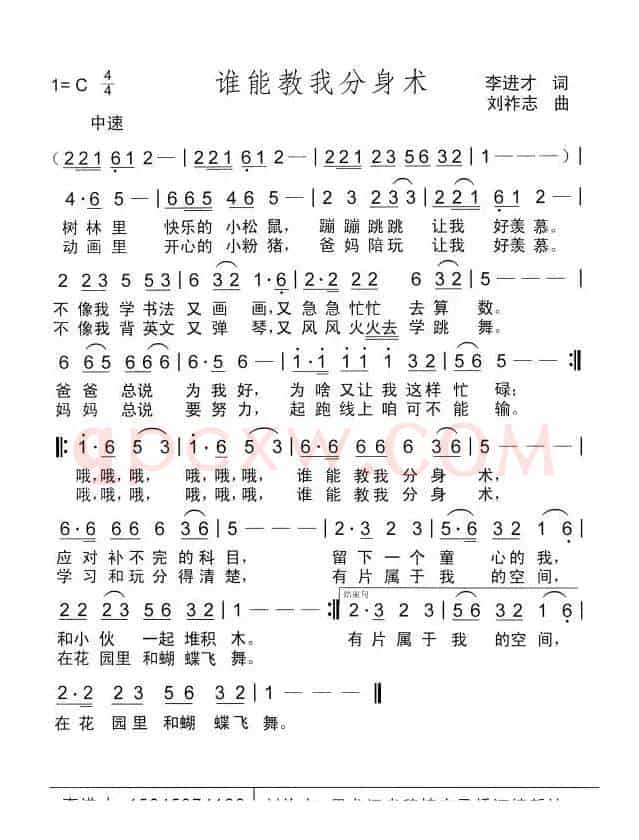 1= C 4/4 谁能教我分身术 李进才 词
刘祚志 曲
中速
( 2 2 1 6 1 2 — | 2 2 1 6 1 2 — | 2 2 1 2 3 5 6 3 2 | 1 — — — ) |
4 · 6 5 — | 6 6 5 4 6 5 — | 2 3 2 3 3 | 2 2 1 6 1 2 — |
树林里 快乐的 小松鼠, 蹦蹦跳跳 让我 好羡慕。
动画里 开心的 小粉猪, 爸妈陪玩 让我 好羡慕。
2 2 3 5 5 3 | 6 3 2 1 · 6 | 2 · 2 2 3 2 | 5 — — — |
不像我 学书法 又画 画,又 急急忙忙 去算 数。
不像我 背英文 又弹 琴,又 风风火火去 学跳 舞。
6 6 5 6 6 6 | 6 · 5 6 — | 1 · 1 1 1 6 3 2 | 5 6 5 — :||
爸爸 总说 为我好, 为啥又让我这样忙 碌;
妈妈 总说 要努力, 起跑线上咱可不能 输。
||: 1 · 6 5 3 | 1 · 6 5 3 | 6 · 6 6 6 6 3 | 5 — — — |
哦,哦,哦, 哦,哦,哦, 谁能教我分身 术,
哦,哦,哦, 哦,哦,哦, 谁能教我分身 术,
6 · 6 6 6 6 3 6 | 5 — — — | 2 · 3 2 2 | 5 · 6 3 2 1 6 |
应对补不完的科目, 留下一个童 心的我,
学习和玩分得清楚, 有片属于我 的空间,
2 2 2 3 5 6 3 2 | 1 — — — :|| 结束句 2 · 3 2 3 | 5 6 3 2 1 6 |
和小伙 一起堆积木。 有片属于我 的空间,
在花园里 和蝴蝶飞舞。
2 · 2 2 3 5 6 3 2 | 1 — — ||
在花园里和蝴 蝶飞舞。
apcxw.COM